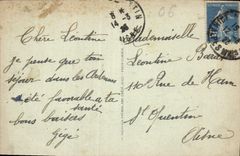 Chère Léontine
je pense que ton
séjour dans les Ardennes
a été favorable à ta
santé
bons baisers
Gégé
Mademoiselle
Léontine
Rue de Ham
St Quentin
Aisne
06